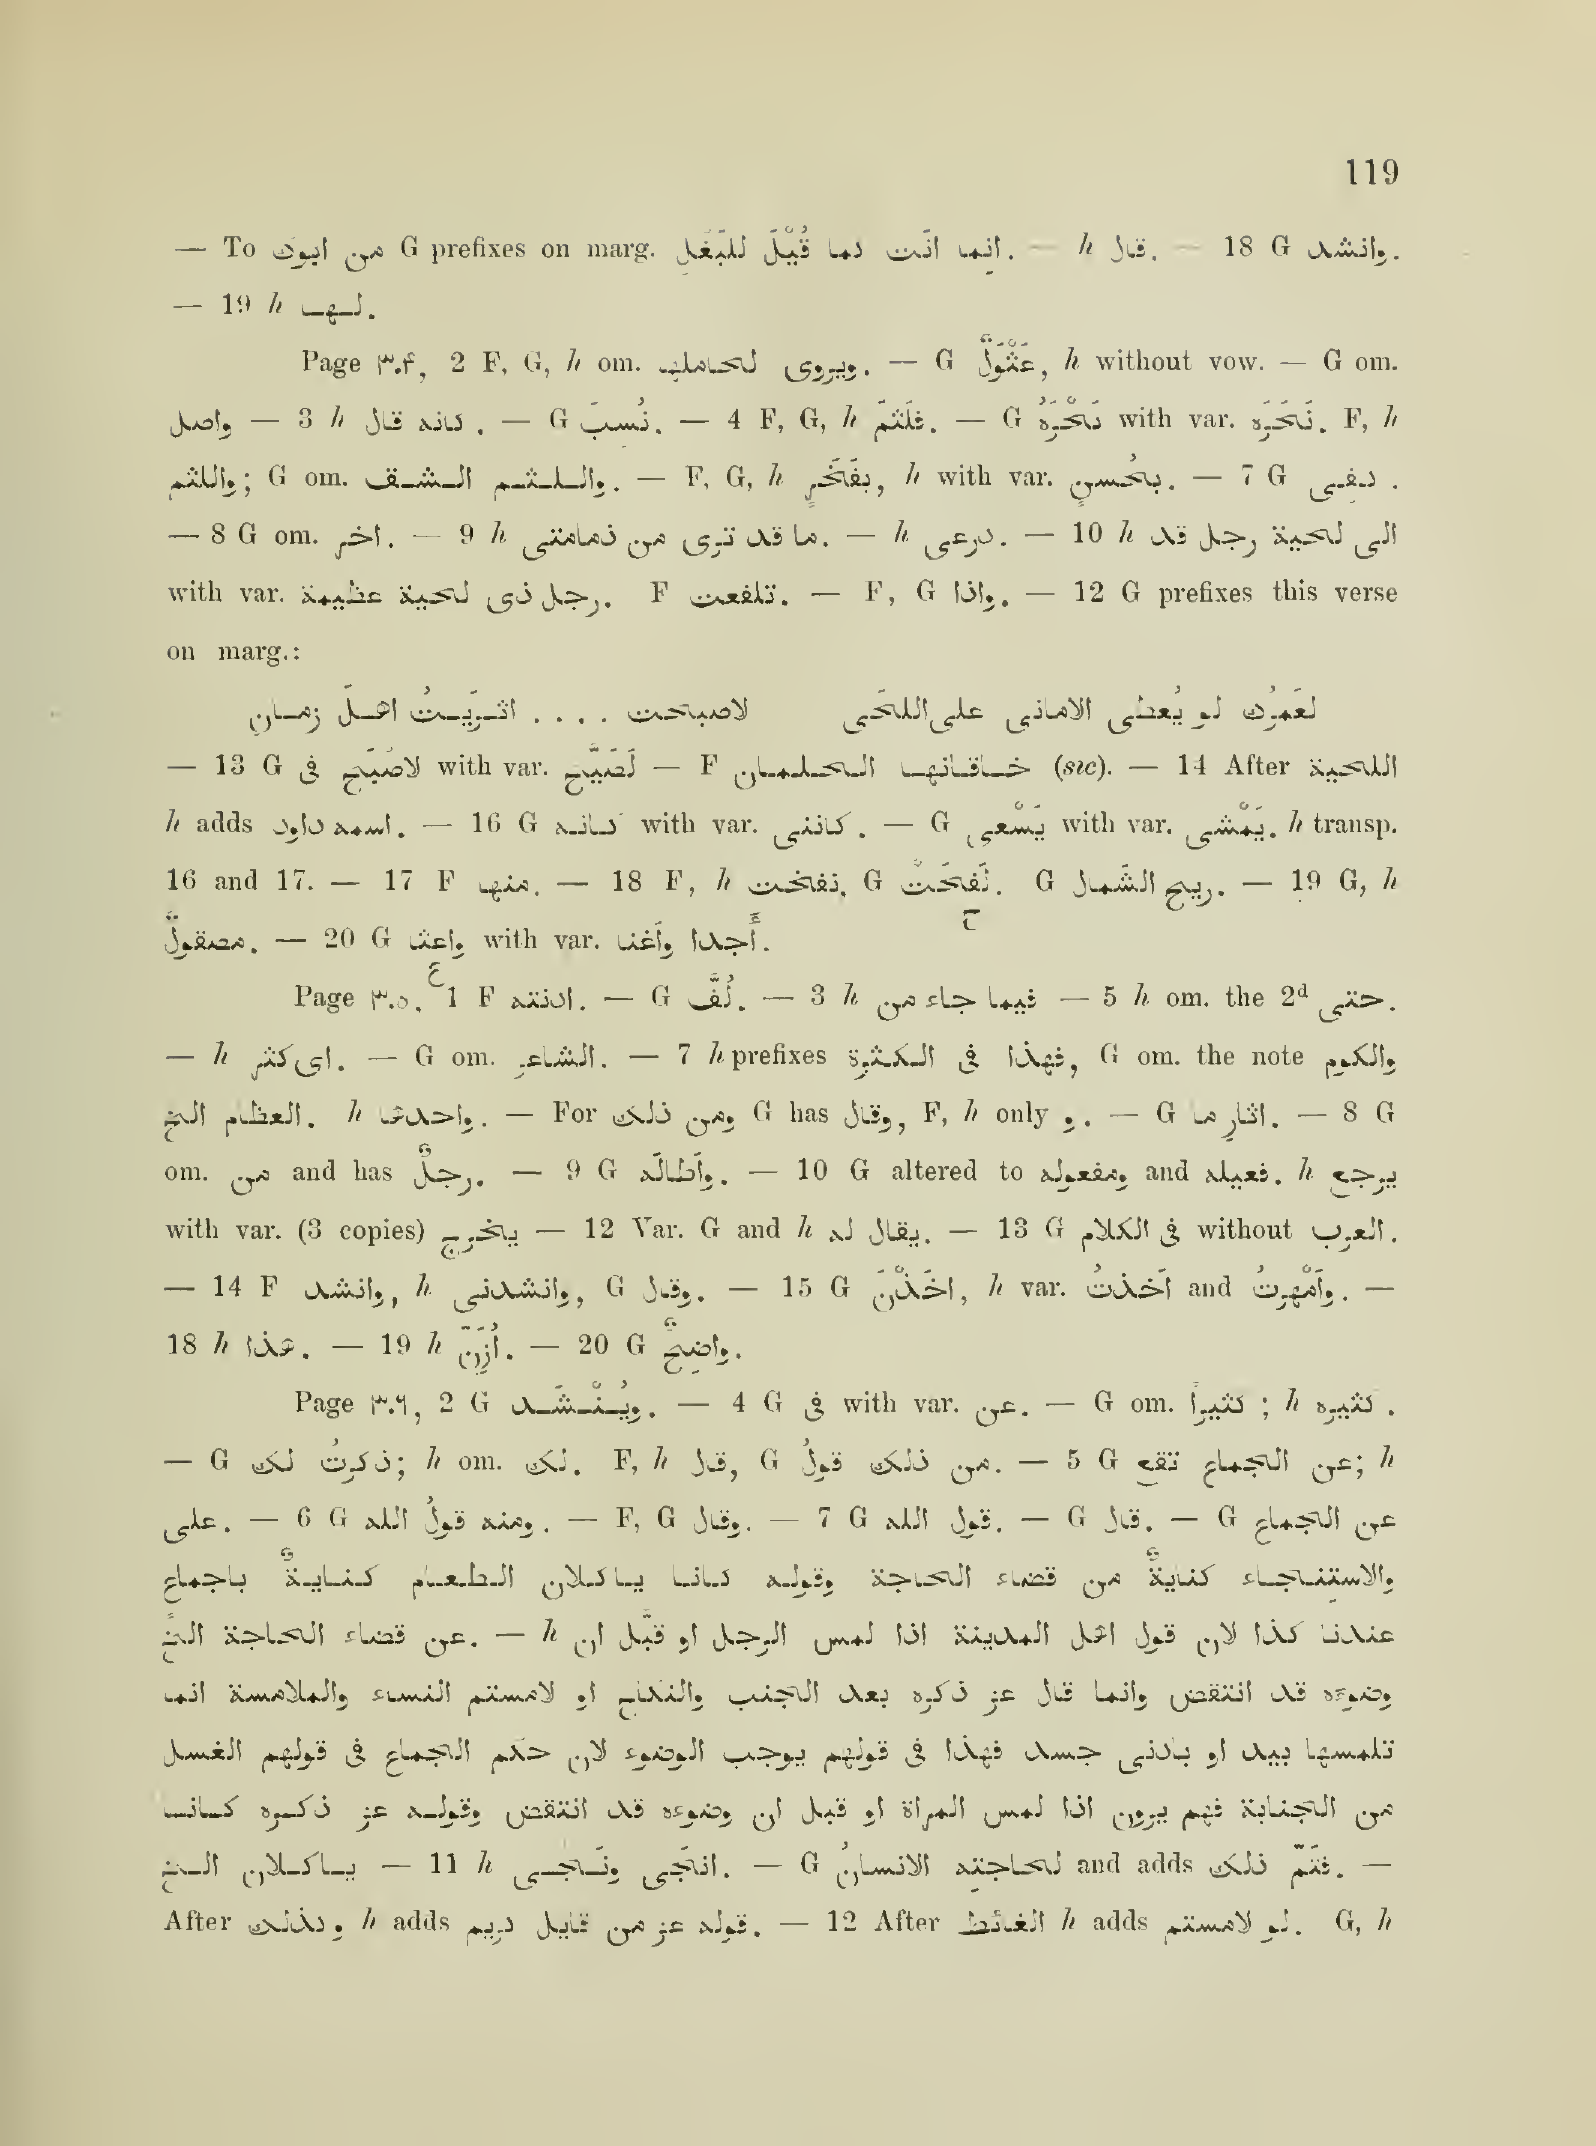 119
— To من ابوك G prefixes on marg. انما انت كما قُيْلَ للبَغْلِ. — h قال. — 18 G وانشد.
— 19 h لها.
Page ٣.۴, 2 F, G, h om. ويروى لحاملها. — G عَثْوَلٌّ, h without vow. — G om.
واصل — 3 h كانه قال. — G نُسِبَ. — 4 F, G, h فلثمّ. — G نَخْرَهُ with var. نَخَرَه. F, h
واللثم; G om. واللثم الشف. — F, G, h بفَخْرٍ, h with var. بحُسنٍ. — 7 G كفى.
— 8 G om. اخر. — 9 h ما قد ترى من ذمامتى. — h درعى. — 10 h الى لحية رجل قد
with var. رجل ذى لحية عظيمة. F تلفعت. — F, G واذا. — 12 G prefixes this verse
on marg.:
لعَمرُك لو يُعطى الامانى على اللحَى لاصبحت . . . . اثريتُ اهلَ زمان
— 13 G لاصْبَح فى with var. لَصَيَّح — F خاقانها الحلمان (sic). — 14 After اللحية
h adds اسمه داود. — 16 G كانه with var. كاننى. — G يَسْعى with var. يَمْشى. h transp.
16 and 17. — 17 F منها. — 18 F, h نفخت, G نَفَحَتْ. G ريح الشَمال. — 19 G, h
مصقولٌ. — 20 G واعثا with var. أجدا وأغنا.
Page ٣.٥. 1 F ادنته. — G لُفَّ. — 3 h فيما جاء من — 5 h om. the 2d حتى.
— h اى كثر. — G om. الشاعر. — 7 h prefixes فهذا فى الكثرة, G om. the note والكوم
العظام الخ. h واحدها. — For ومن ذلك G has وقال, F, h only و. — G اثارِ ما. — 8 G
om. من and has رجلٌ. — 9 G وأطالَه. — 10 G altered to ومفعوله and فعيله. h يرجع
with var. (3 copies) يخرج — 12 Var. G and h يقال له. — 13 G فى الكلام without العرب.
— 14 F وانشد, h وانشدنى, G وقال. — 15 G اخَذْنَ, h var. أخذتُ and وأَمْهرتُ. —
18 h هذا. — 19 h أُزَنّ. — 20 G واضِحٌ.
Page ٣.٦, 2 G ويُنْشَد. — 4 G فى with var. عن. — G om. كثيرا; h كثيره.
— G ذكرتُ لك; h om. لك. F, h قال, G من ذلك قولُ. — 5 G عن الجماع تقع; h
عن الجماع G — .قال G — .قول الله 7 G — .وقال F, G — .ومنه قولُ الله 6 G — .على
والاستنجاء كنايةٌ من قضاء الحاجة وقوله كانا ياكلان الطعام كنايةٌ باجماع
عن قضاء الحاجة الخ. — h عندنا كذا لان قول اهل المدينة اذا لمس الرجل او قبَّل ان
وضوءه قد انتقض وانما قال عز ذكره بعد الجنب والنكاح او لامستم النساء والملامسة انما
تلمسها بيد او بادنى جسد فهذا فى قولهم يوجب الوضوء لان حكم الجماع فى قولهم الغسل
من الجنابة فهم يرون اذا لمس المراة او قبل ان وضوءه قد انتقض وقوله عز ذكره كانا
ياكلان الخ — 11 h انجَى ونَجى. — G لحاجتِه الانسانُ and adds فثَمّ ذلك. —
After وكذلك h adds قوله عز من قايل كريم. — 12 After الغائط h adds لو لامستم. G, h